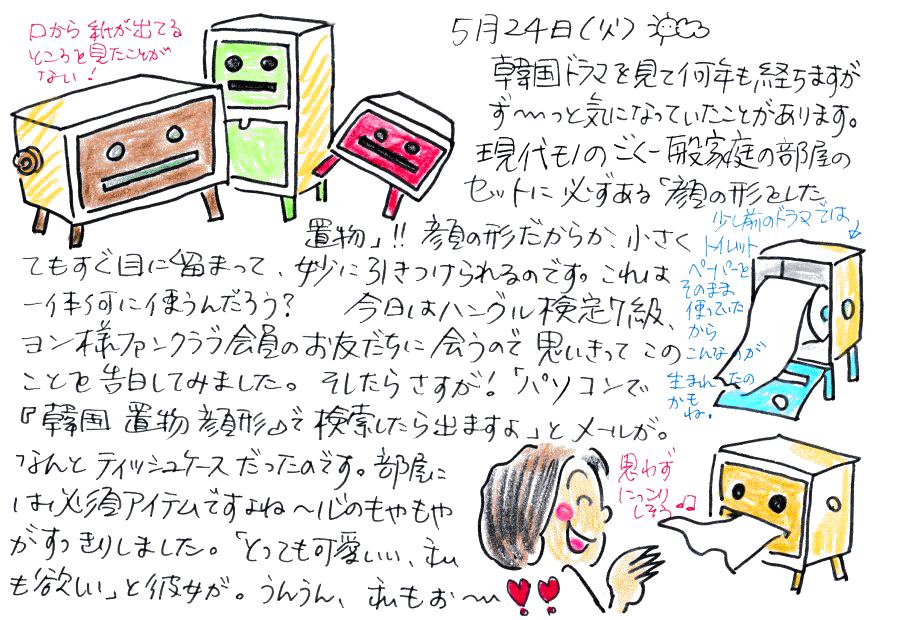 口から紙が出てる
ところを見たことが
ない!
5月24日(火)
韓国ドラマを見て何年も経ちますが
ず〜っと気になっていたことがあります。
現代もののごく一般家庭の部屋の
セットに必ずある「顔の形をした
置物」!! 顔の形だからか、小さく
てもすぐ目に留まって、妙に引きつけられるのです。これは
一体何に使うんだろう? 今日はハングル検定7級、
ヨン様ファンクラブ会員のお友だちに会うので思いきってこの
ことを告白してみました。そしたらさすが!「パソコンで
『韓国 置物 顔形』で検索したら出ますよ」とメールが。
なんとティッシュケースだったのです。部屋に
は必須アイテムですよね〜心のもやもや
がすっきりしました。「とっても可愛いい、私
も欲しい」と彼女が。うんうん、私もぉ〜
少し前のドラマでは
トイレット
ペーパーを
そのまま
使っていた
から
こんなのが
生まれたの
かも
ね。
思わず
にっこり
しそう♪